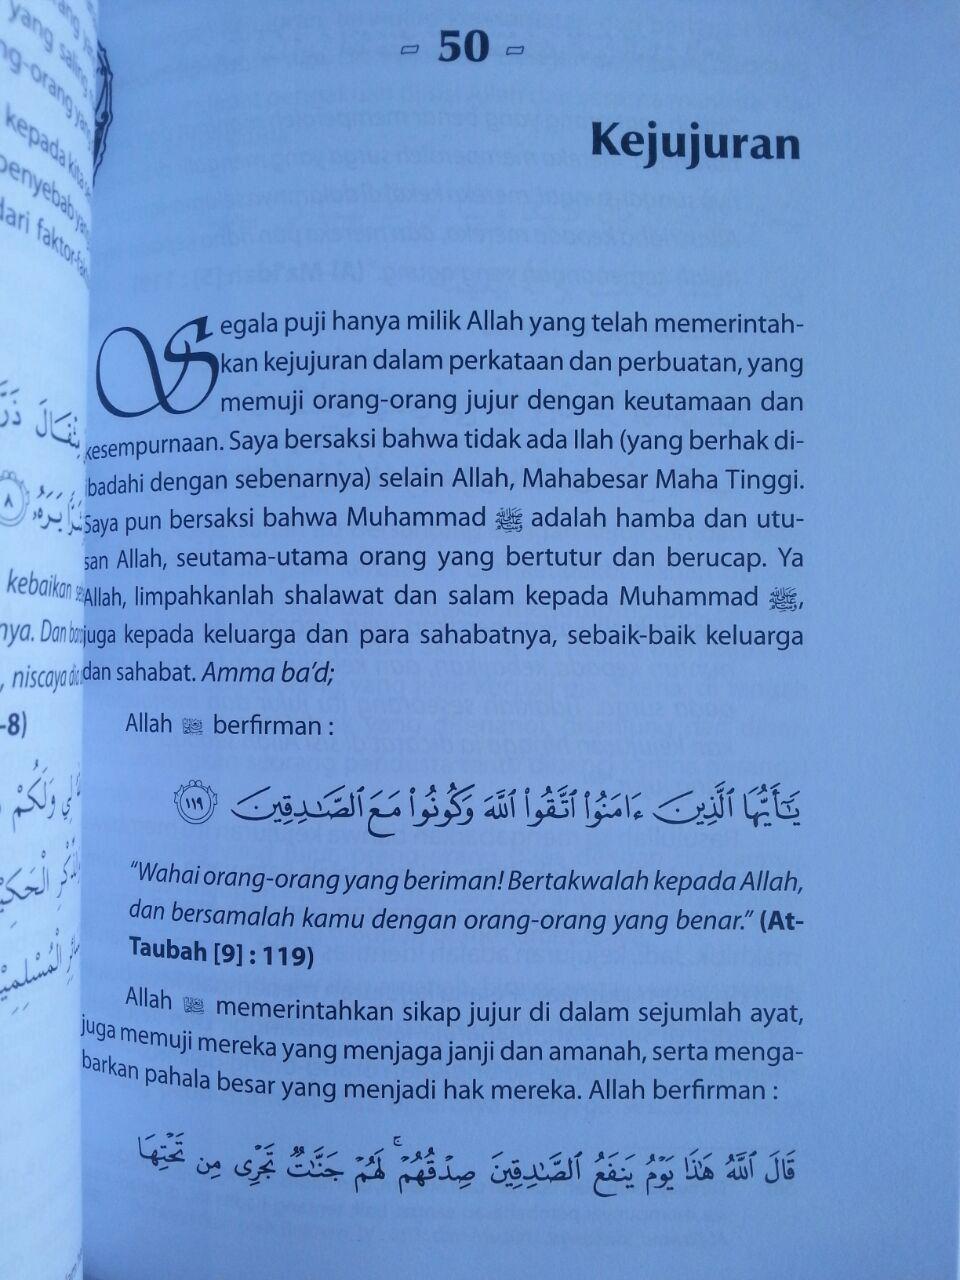 50
Kejujuran
Segala puji hanya milik Allah yang telah memerintah-
kan kejujuran dalam perkataan dan perbuatan, yang
memuji orang-orang jujur dengan keutamaan dan
kesempurnaan. Saya bersaksi bahwa tidak ada Ilah (yang berhak di-
ibadahi dengan sebenarnya) selain Allah, Mahabesar Maha Tinggi.
Saya pun bersaksi bahwa Muhammad ﷺ adalah hamba dan utu-
san Allah, seutama-utama orang yang bertutur dan berucap. Ya
Allah, limpahkanlah shalawat dan salam kepada Muhammad ﷺ,
juga kepada keluarga dan para sahabatnya, sebaik-baik keluarga
dan sahabat. Amma ba’d;
Allah berfirman :
يَٰٓأَيُّهَا ٱلَّذِينَ ءَامَنُواْ ٱتَّقُواْ ٱللَّهَ وَكُونُواْ مَعَ ٱلصَّٰدِقِينَ ١١٩
“Wahai orang-orang yang beriman! Bertakwalah kepada Allah,
dan bersamalah kamu dengan orang-orang yang benar.” (At-
Taubah [9] : 119)
Allah memerintahkan sikap jujur di dalam sejumlah ayat,
juga memuji mereka yang menjaga janji dan amanah, serta menga-
barkan pahala besar yang menjadi hak mereka. Allah berfirman :
قَالَ ٱللَّهُ هَٰذَا يَوْمُ يَنفَعُ ٱلصَّٰدِقِينَ صِدْقُهُمْ ۚ لَهُمْ جَنَّٰتٌ تَجْرِى مِن تَحْتِهَا